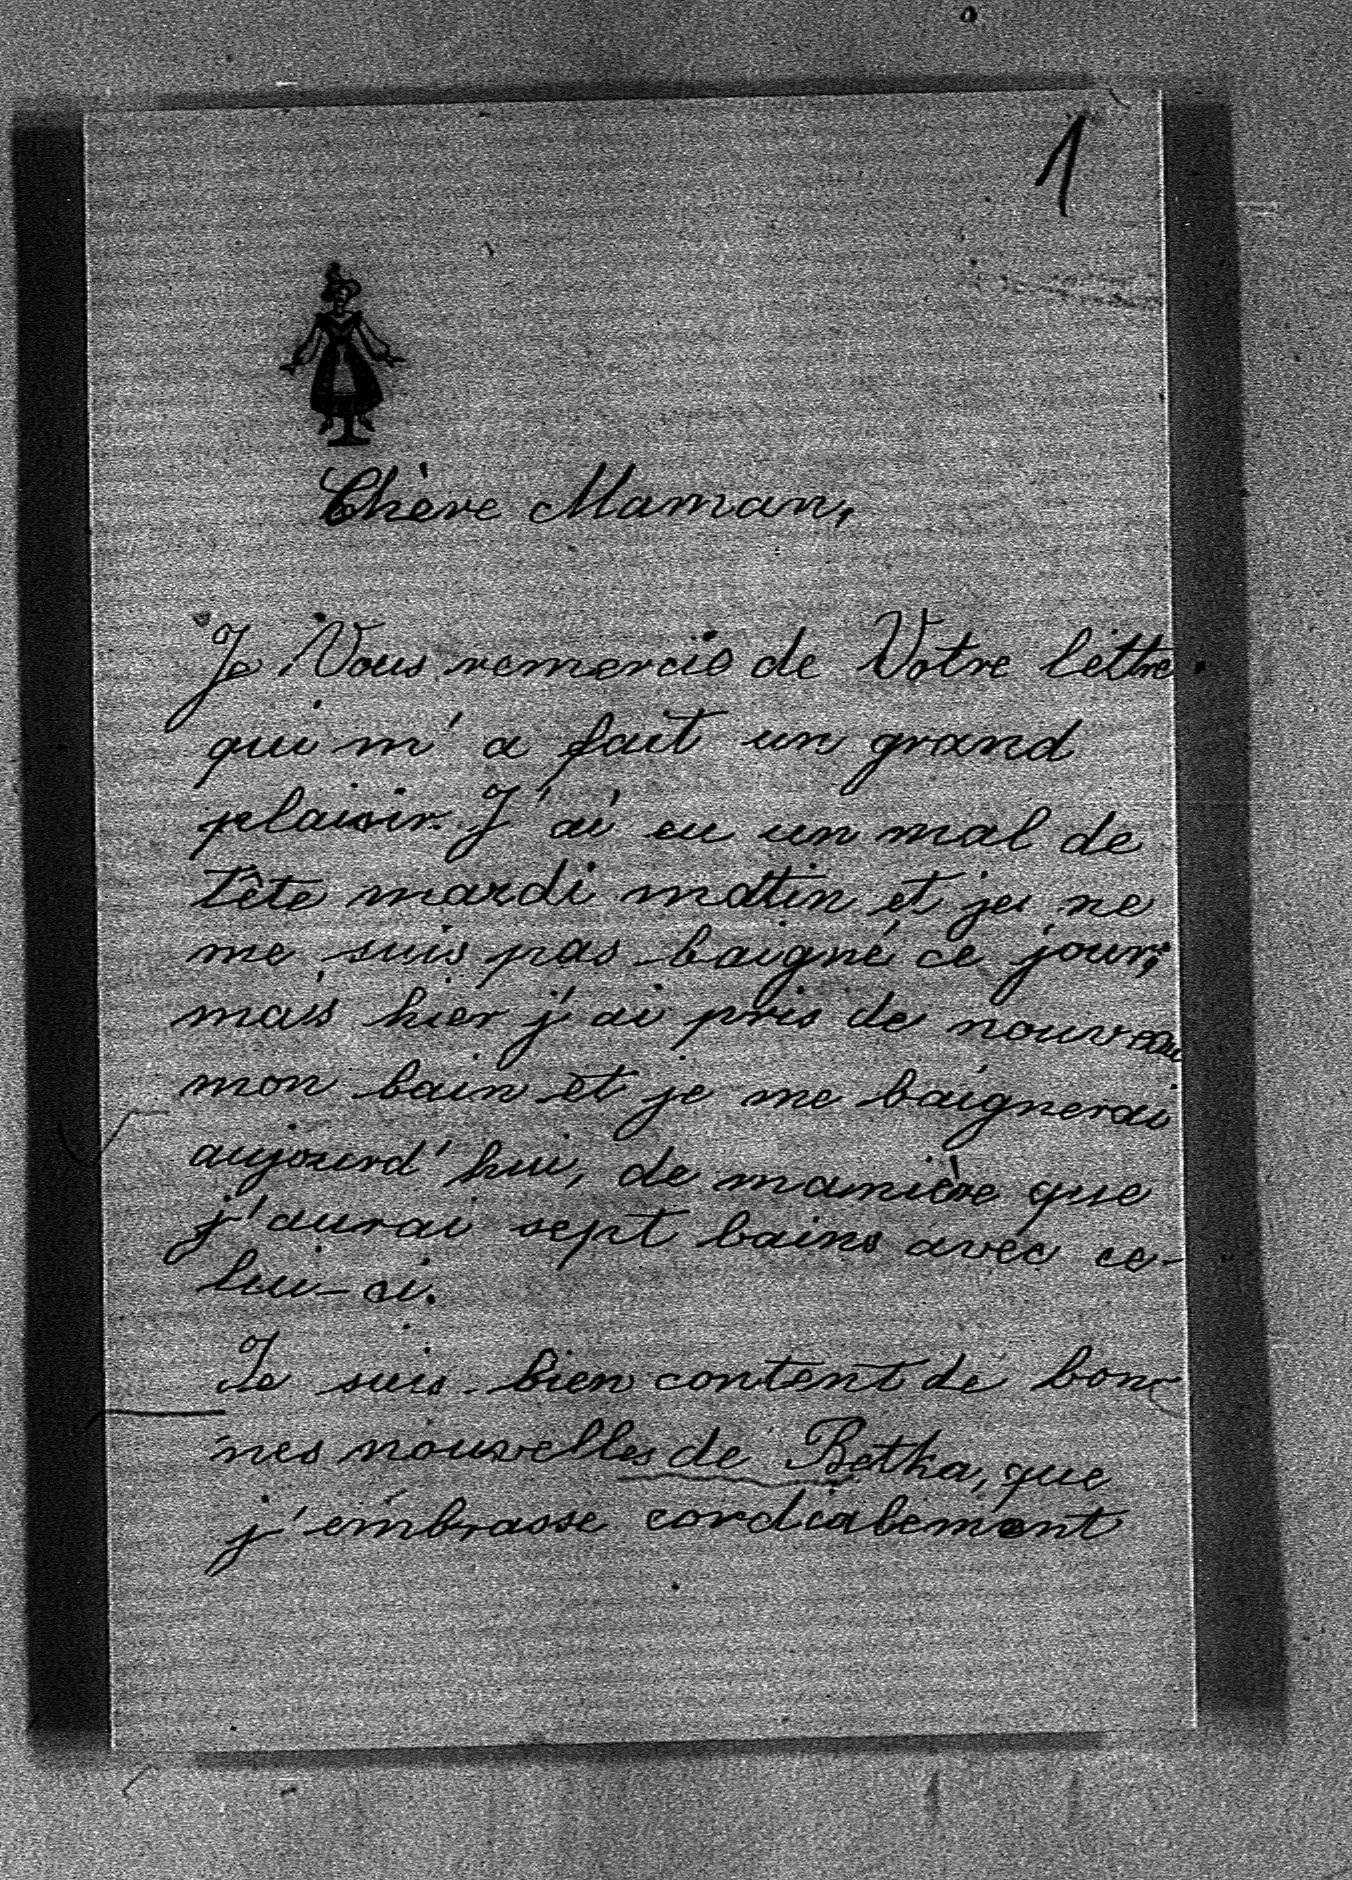 1
Chère Maman,
Je Vous remercie de Votre lettre
qui m'a fait un grand
plaisir. J'ai eu un mal de
tête mardi matin et je ne
me suis pas baigné ce jour;
mais hier j'ai pris de nouveau
mon bain et je me baignerai
aujourd'hui, de manière que
j'aurai sept bains avec ce-
lui-ci.
Je suis bien content de bon-
nes nouvelles de Betka, que
j'embrasse cordialement